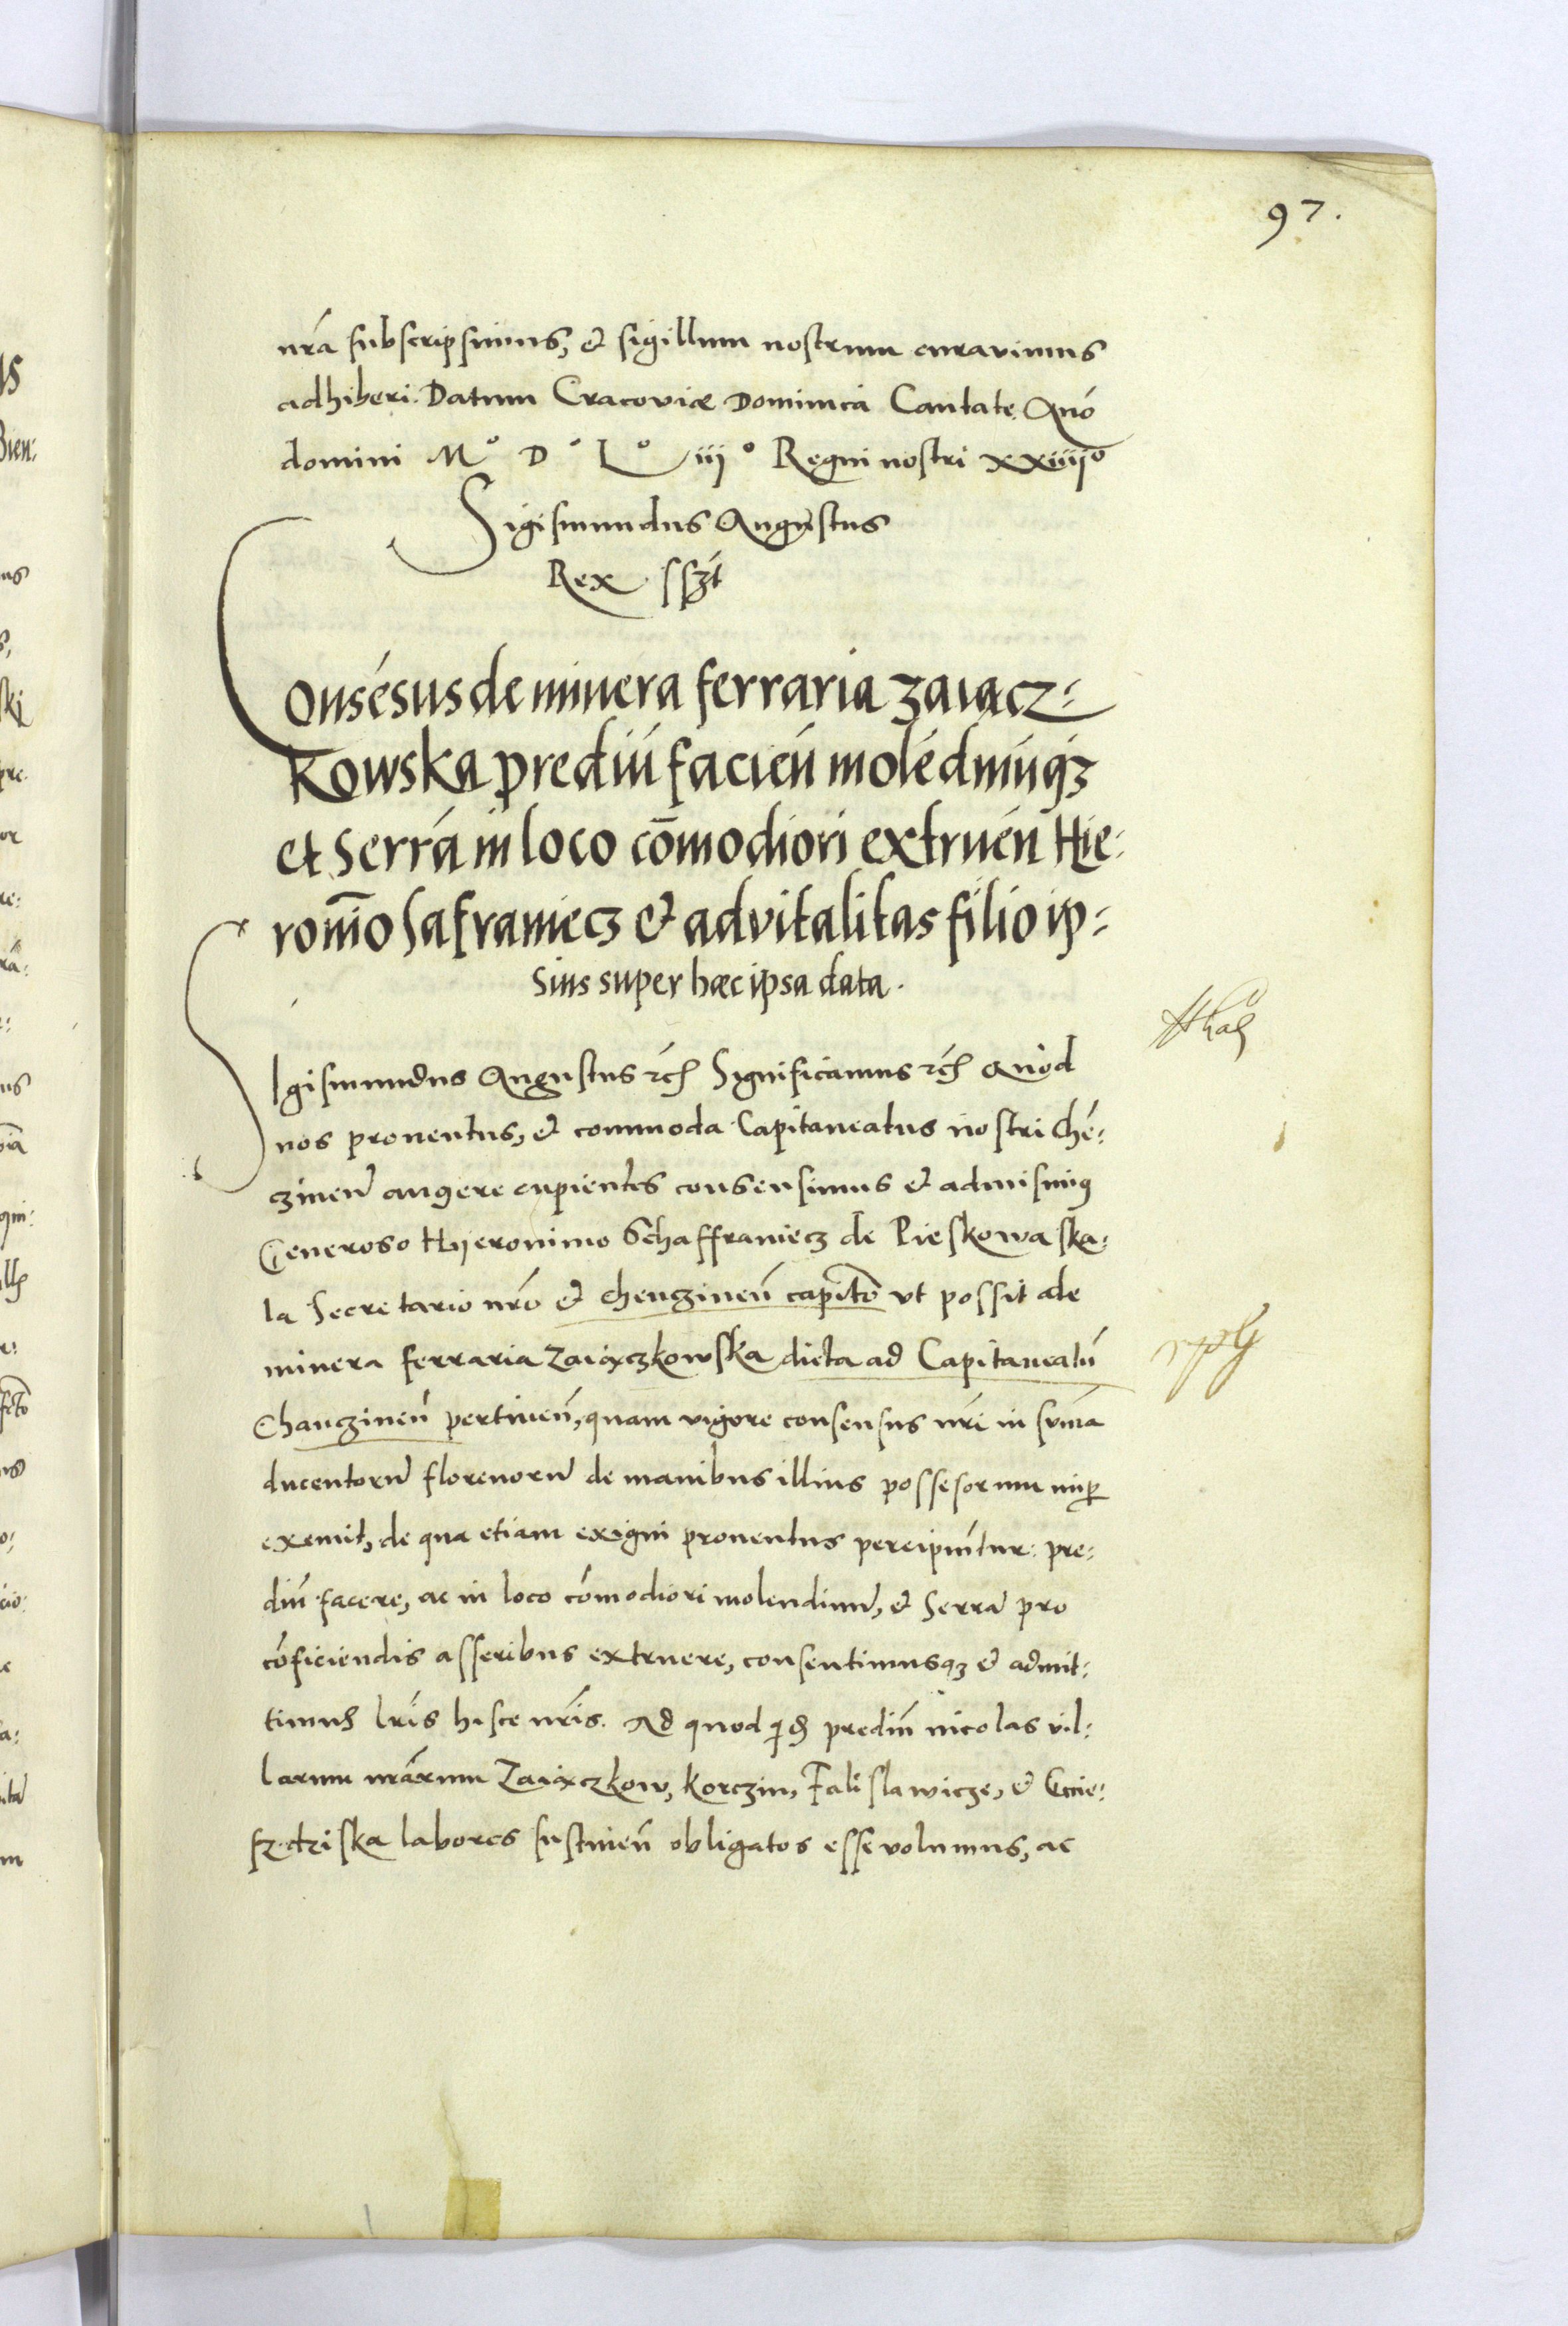 97.
nrã subscripsimus, et sigillum nostrum curavimus
adhiberi. Datum Cracoviæ Dominica Cantate. Anõ
domini M° D° L° iii° Regni nostri xxiiii°
Sigismundus Augustus
Rex sszt
Consẽsus de minera ferraria zaiącz=
kowska prediũ facień molẽdinũqz
et serrã in loco cõmodiori extruẽn Hie=
ronimo Safraniecz et advitalitas filio ip=
sius super hæc ipsa data.
Sigismundus Augustus rcz Significamus rcz Quod
nos proventus, et commoda Capitaneatus nostri Chẽ=
czineñ augere cupientes consensimus et admisimus
Generoso Hyeronimo Schaffraniecz de Pieskowa ska=
la Secretario nrõ et chenczineñ capitõ ut possit de
minera ferraria Zaiączkowska dicta ad Capitaneatũ
Chanczineñ pertineñ, quam vigore consensus nrĩ in sũma
ducentorũ florenorũ de manibus illius possesorum nup
exemit, de qua etiam exigui proventus percipiũtur: pre=
diũ facere, ac in loco cõmodiori molendinũ, et serrã pro
cõficiendis asseribus extruere, consentimusqz et admit=
timus lrĩs hisce nrĩs. Ad quod qd prediũ incolas vil=
larum nrãrum Zaiączkow, korczin, Falislawicze, et Gnie=
zdziska labores sustineñ obligatos esse volumus, ac